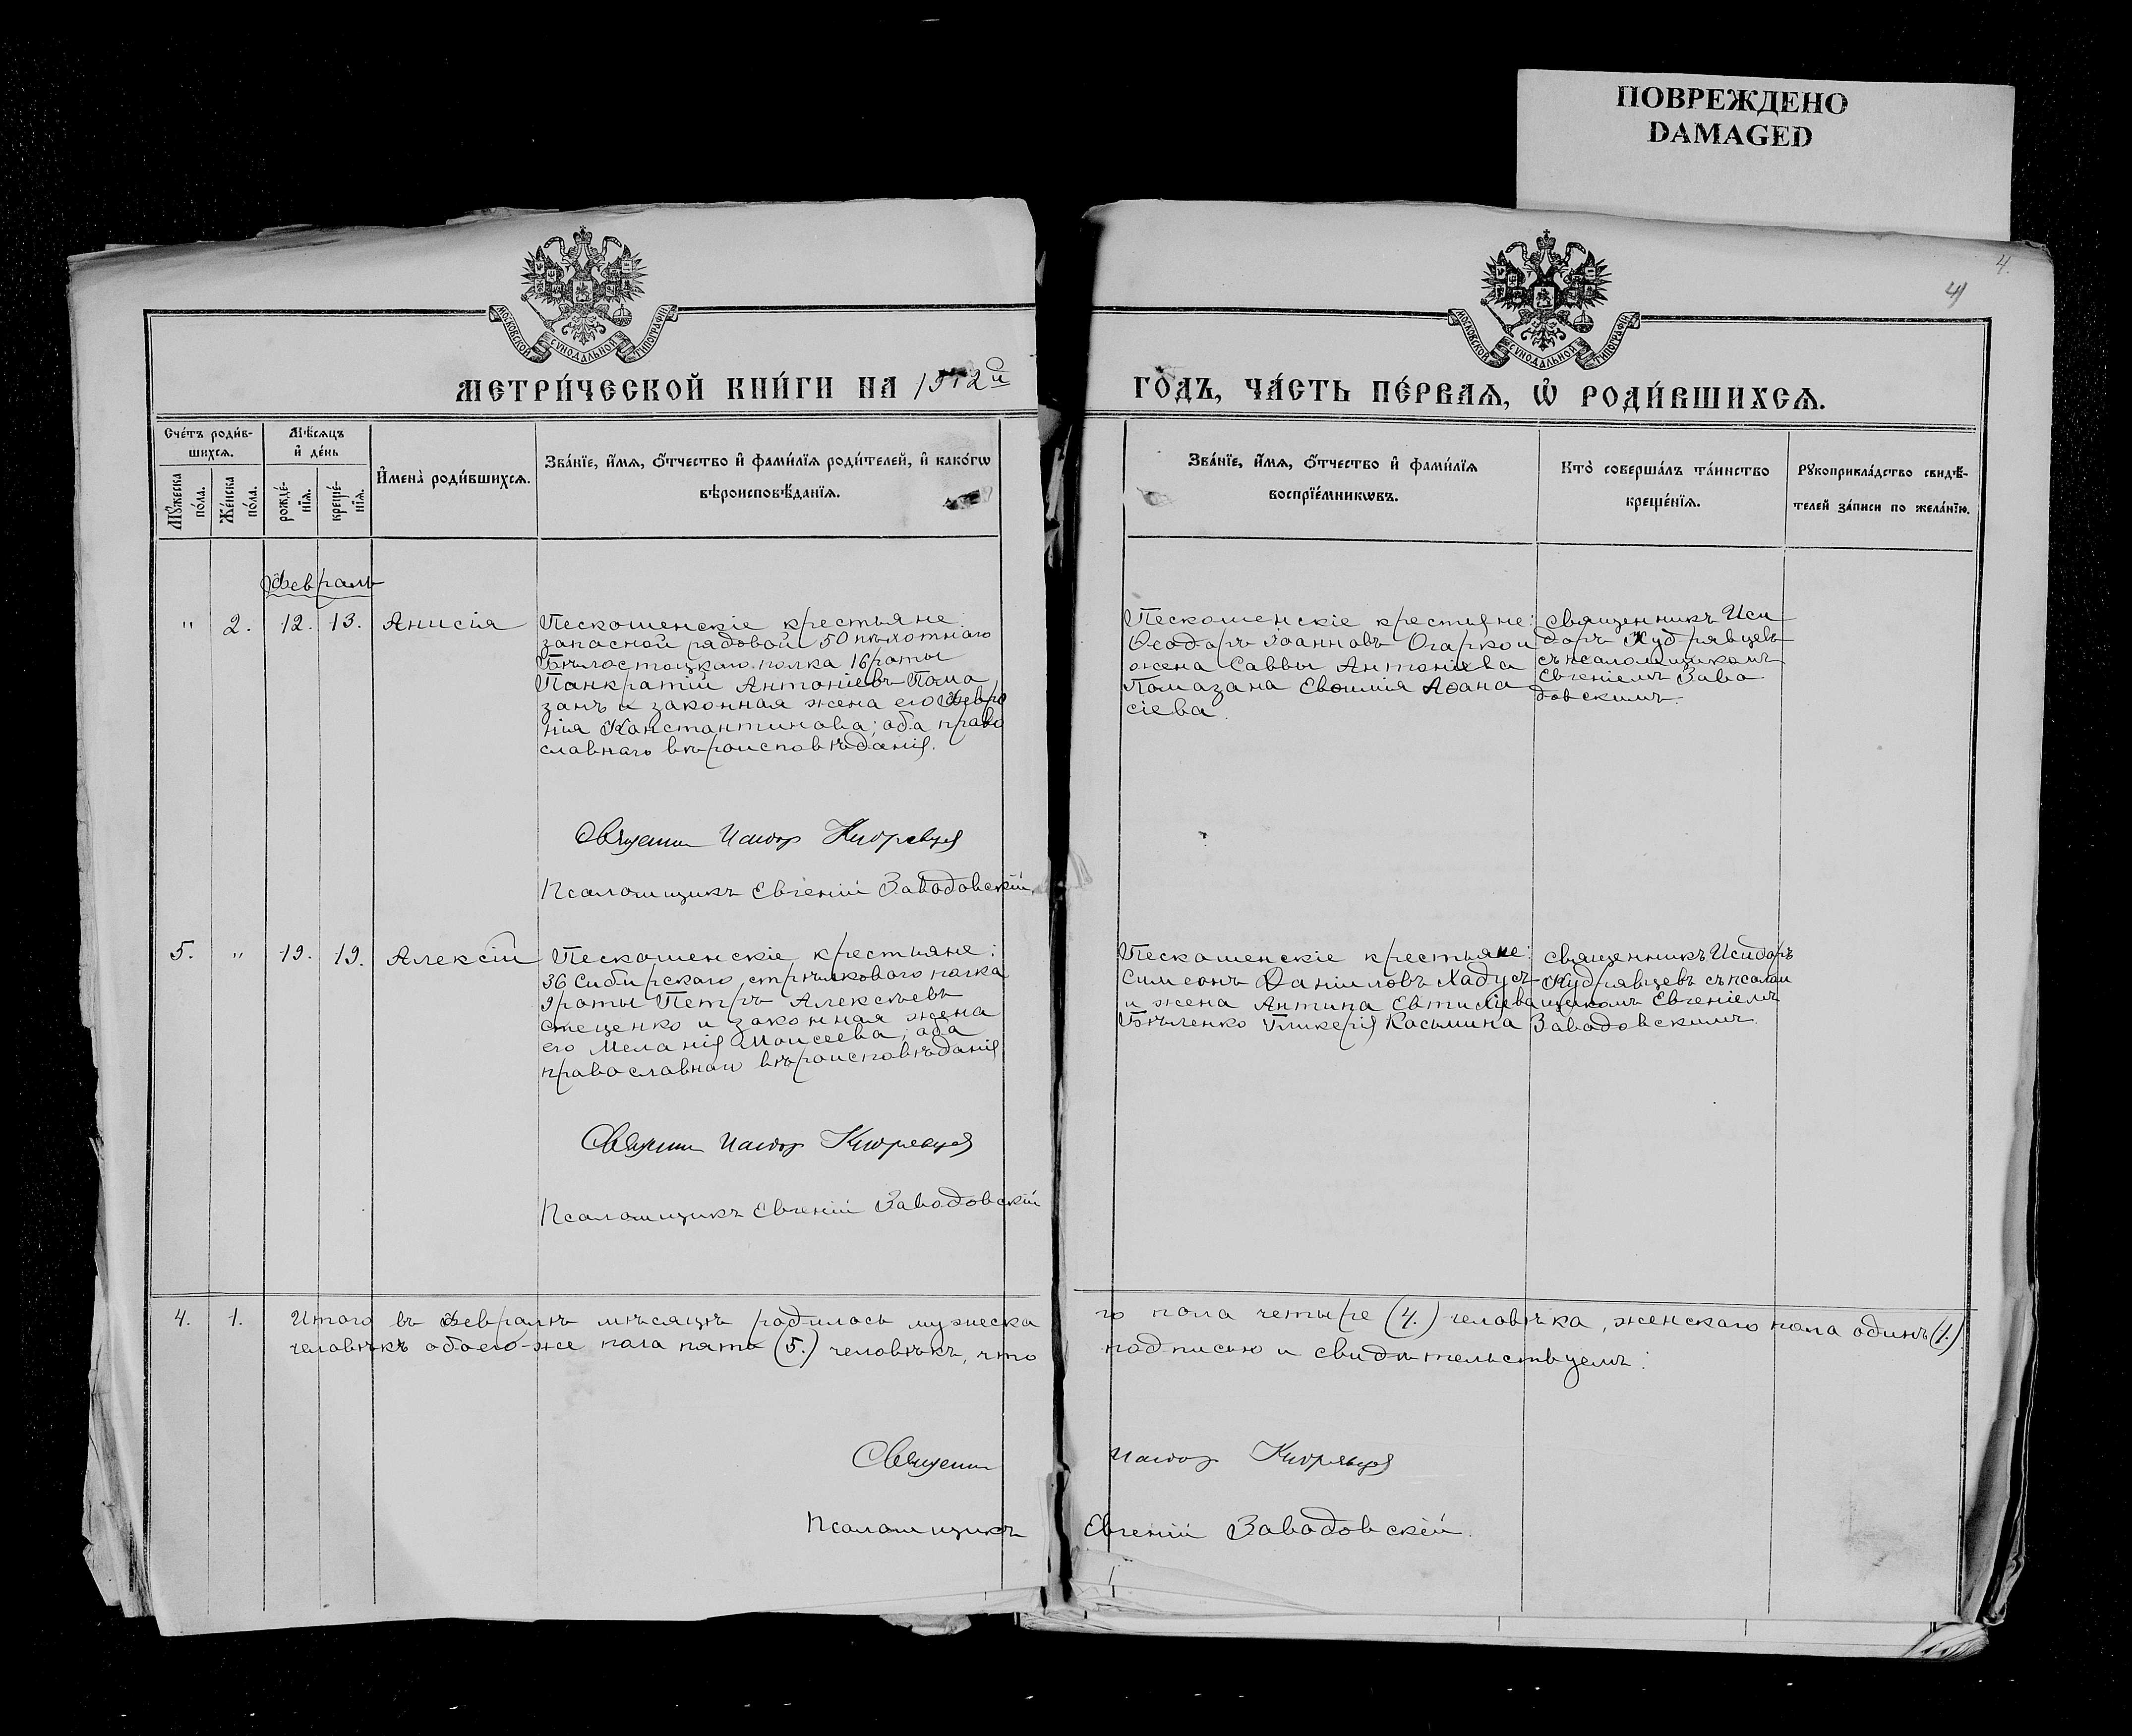 ПОВРЕЖДЕНО
DAMAGED
4.
4
МОСКОВСКОЙ СѴНОДАЛЬНОЙ ТИПОГРАФІИ
МОСКОВСКОЙ СѴНОДАЛЬНОЙ ТИПОГРАФІИ
МЕТРИ́ЧЕСКОЙ КНИ́ГИ НА 1912й
ГО́ДЪ, ЧА́СТЬ ПЕ́РВАѦ, Ѽ РОДИ́ВШИХСѦ.
Сче́тъ роди́в-
шихсѧ.
Мꙋ́жеска
по́ла.
Же́нска
по́ла.
Мѣ́сѧцъ
и҆ де́нь
рожде́-
нїѧ.
креще́-
нїѧ.
И҆мена̀ роди́вшихсѧ.
Зва́нїе, и҆́мѧ, ѻ҆́тчество и҆ фами́лїѧ роди́телей, и҆ како́гѡ
вѣроисповѣ́данїѧ.
Зва́нїе, и҆́мѧ, ѻ҆́тчество и҆ фами́лїѧ
воспрїе́мникѡвъ.
Кто̀ соверша́лъ та́инство
креще́нїѧ.
Рꙋкоприкла́дство свидѣ́-
телей за́писи по жела́нїю.
Февраль
" 2. 12. 13. Анисія
Пескошенскіе крестьяне
запасной рядовой 50 пѣхотнаго
Бѣлостоцкаго полка 16 роты
Панкратій Антоніевъ Пома
занъ и законная жена его Февро
нія Константинова; оба право
славнаго вѣроисповѣданія.
Священн Исидор Кудрявцев
Псаломщикъ Евгеній Заводовскій.
Пескошенскіе крестьяне:
Ѳеодоръ Іоанновъ Огаркои
жена Саввы Антоніева
Помазана Евѳимія Аѳана
сіева.
священникъ Иси
доръ Кудрявцевъ
съ псаломщикомъ
Евгеніемъ Заво
довскимъ.
5. " 19. 19. Алексій
Пескошенскіе крестьяне:
36 Сибирскаго стрѣлковаго полка
9 роты Петръ Алексѣевъ
Стеценко и законная жена
его Меланія Моисеева; оба
православнаго вѣроисповѣданія
Священн Исидор Кудрявцев
Псаломщикъ Евгеній Заводовскій
Пескошенскіе крестьяне:
Симеонъ Даніиловъ Хадусъ
и жена Антипа Евтихіева
Бѣленко Гликерія Касьмина
священникъ Исидоръ
Кудрявцевъ съ псалом
щикомъ Евгеніемъ
Заводовскимъ.
4. 1. Итого въ Февралѣ мѣсяцѣ родилось мужеска го пола четыре (4.) человѣка, женскаго пола одинъ (1.)
человѣкъ обоего-же пола пять (5.) человѣкъ, что подписью и свидѣтельствуемъ:
Священн Исидор Кудрявцев
Псаломщикъ Евгеній Заводовскій.